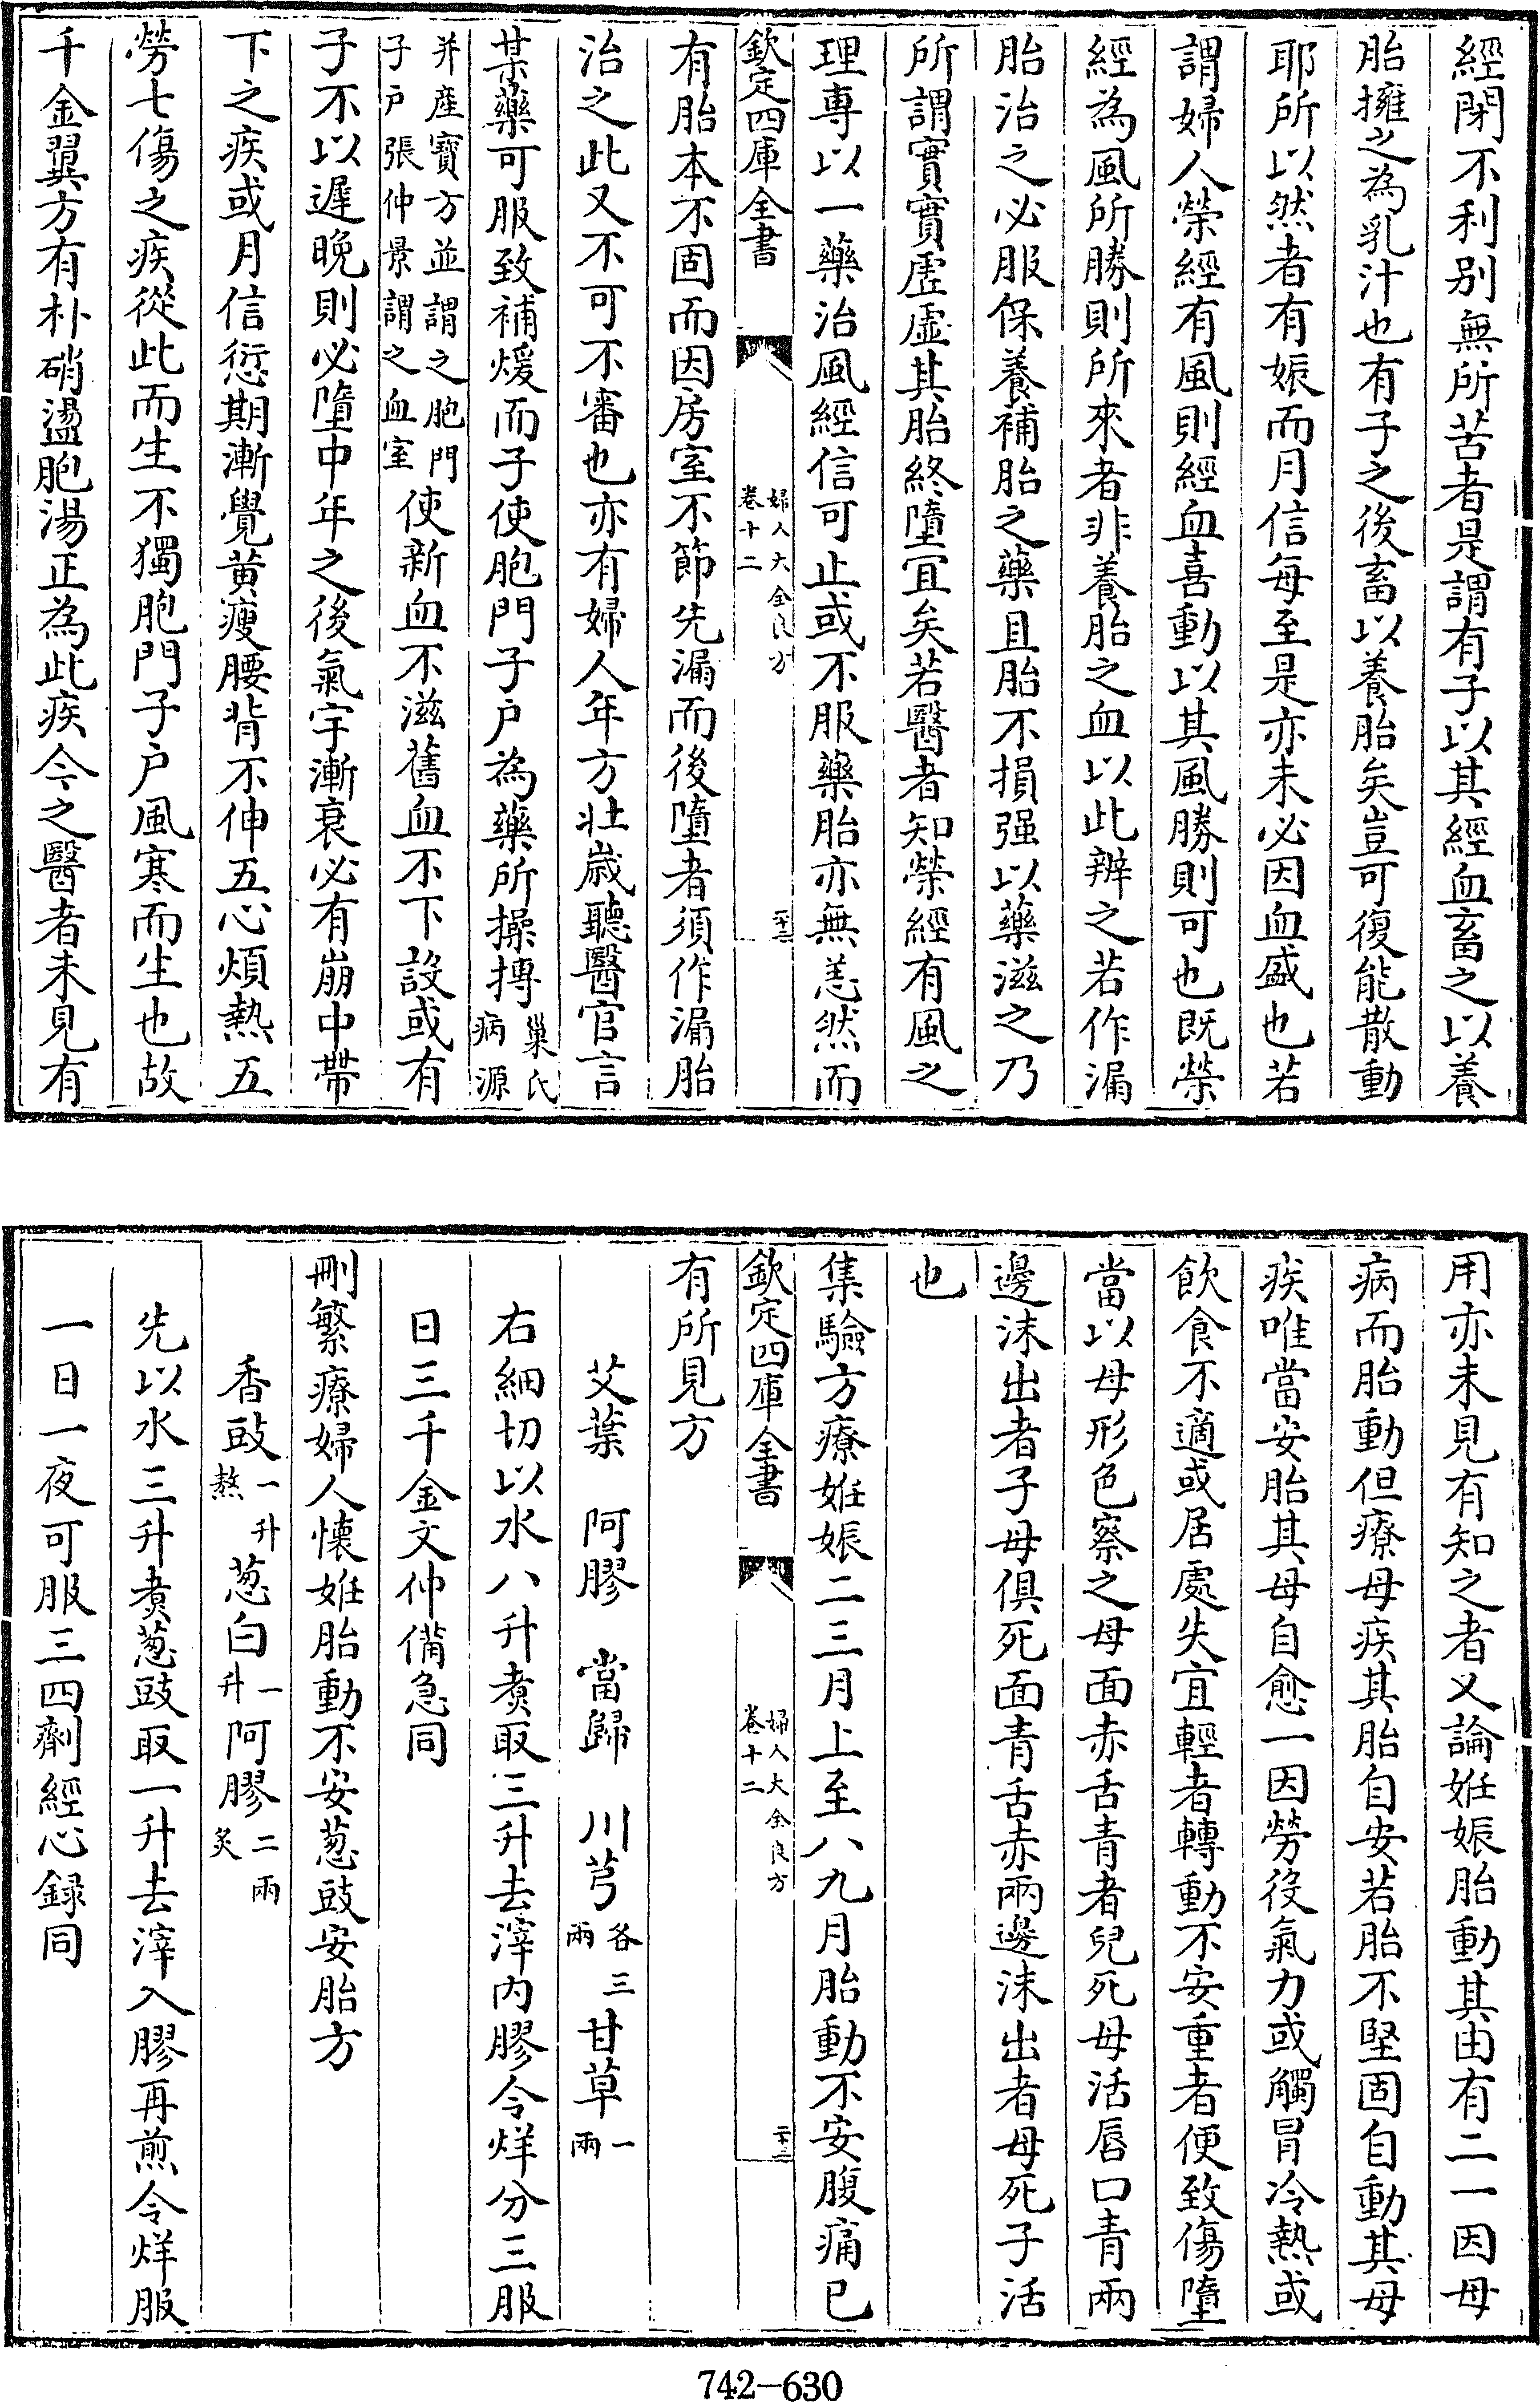 經閉不利别無所苦者是謂有子以其經血畜之以養
胎擁之為乳汁也有子之後畜以養胎矣豈可復能散動
耶所以然者有娠而月信每至是亦未必因血盛也若
謂婦人榮經有風則經血喜動以其風勝則可也既榮
經為風所勝則所來者非養胎之血以此辨之若作漏
胎治之必服保養補胎之藥且胎不損强以藥滋之乃
所謂實實虚虚其胎終墮宜矣若醫者知榮經有風之
理專以一藥治風經信可止或不服藥胎亦無恙然而
欽定四庫全書
婦人大全良方
卷十二
二十二
有胎本不固而因房室不節先漏而後墮者須作漏胎
治之此又不可不審也亦有婦人年方壯嵗聽醫官言
某藥可服致補煖而子使胞門子户為藥所操搏巢氏病源
并産寶方並謂之胞門子户張仲景謂之血室使新血不滋舊血不下設或有
子不以遲晚則必墮中年之後氣宇漸衰必有崩中帶
下之疾或月信愆期漸覺黄瘦腰背不伸五心煩熱五
勞七傷之疾從此而生不獨胞門子户風寒而生也故
千金翼方有朴硝盪胞湯正為此疾今之醫者未見有
用亦未見有知之者又論姙娠胎動其由有二一因母
病而胎動但療母疾其胎自安若胎不堅固自動其母
疾唯當安胎其母自愈一因勞役氣力或觸冒冷熱或
飲食不適或居處失宜輕者轉動不安重者便致傷墮
當以母形色察之母面赤舌青者兒死母活唇口青兩
邊沫出者子母俱死面青舌赤兩邊沫出者母死子活
也
集驗方療姙娠二三月上至八九月胎動不安腹痛已
欽定四庫全書
婦人大全良方
卷十二
二十三
有所見方
艾葉 阿膠 當歸 川芎各三兩甘草一兩
右細切以水八升煮取三升去滓内膠令烊分三服
日三千金文仲備急同
刪繁療婦人懷姙胎動不安葱豉安胎方
香豉一升熬葱白一升阿膠二兩炙
先以水三升煮葱豉取一升去滓入膠再煎令烊服
一日一夜可服三四劑經心録同
742-630